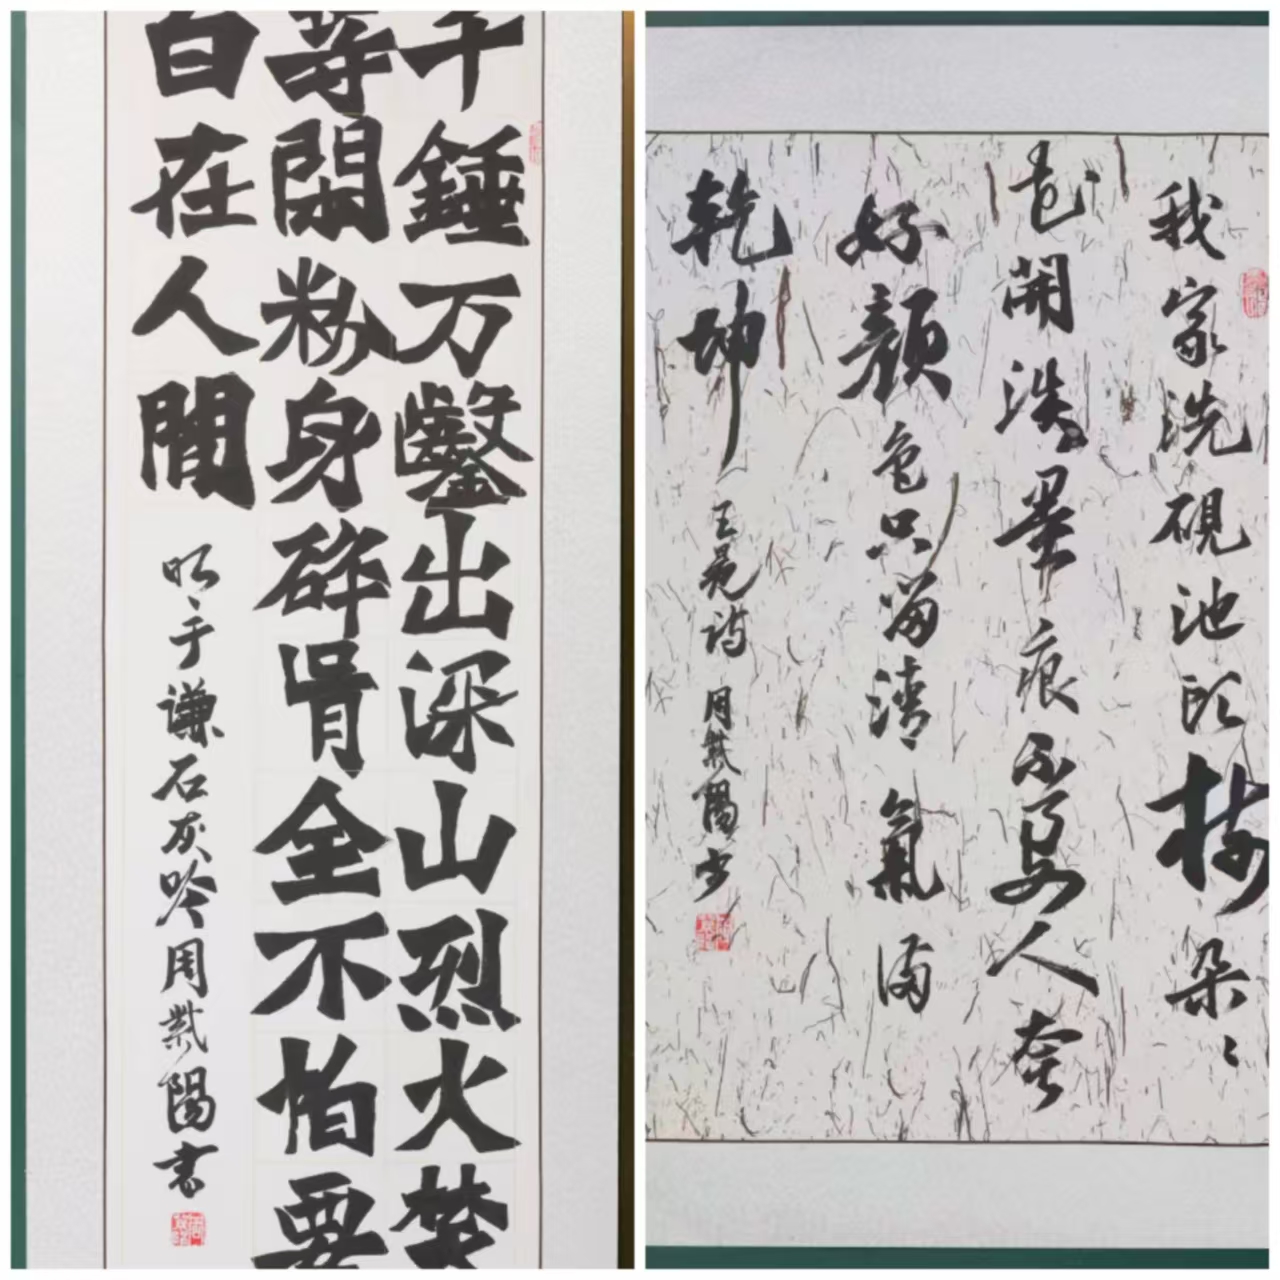 千錘万鑿出深山烈火焚
等閑粉身碎骨全不怕要
白在人間
明于谦石灰吟周陽書
我家洗硯池头树朵〻
花開淡墨痕不要人夸
好顏色只留清氣滿
乾坤
王冕诗 周陽书